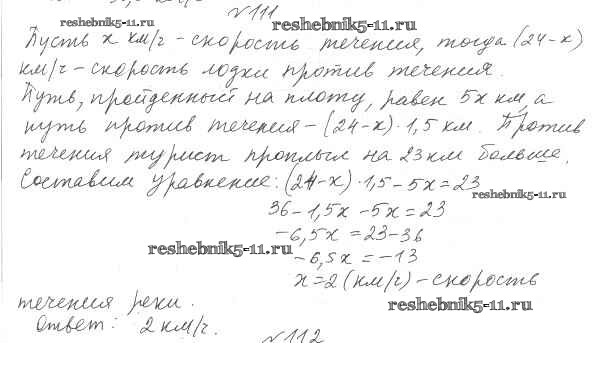 №111
reshebnik5-11.ru reshebnik5-11.ru
Пусть x км/ч - скорость течения, тогда (24-x)
км/ч - скорость лодки против течения.
Путь, пройденный на плоту, равен 5x км, а
путь против течения - (24-x)·1,5 км. Против
течения турист проплыл на 23 км больше.
Составим уравнение: (24-x)·1,5-5x=23
reshebnik5-11.ru
36-1,5x-5x=23
-6,5x=23-36
reshebnik5-11.ru
-6,5x=-13
x=2 (км/ч) - скорость
течения реки.
reshebnik5-11.ru
Ответ: 2 км/ч.
№112